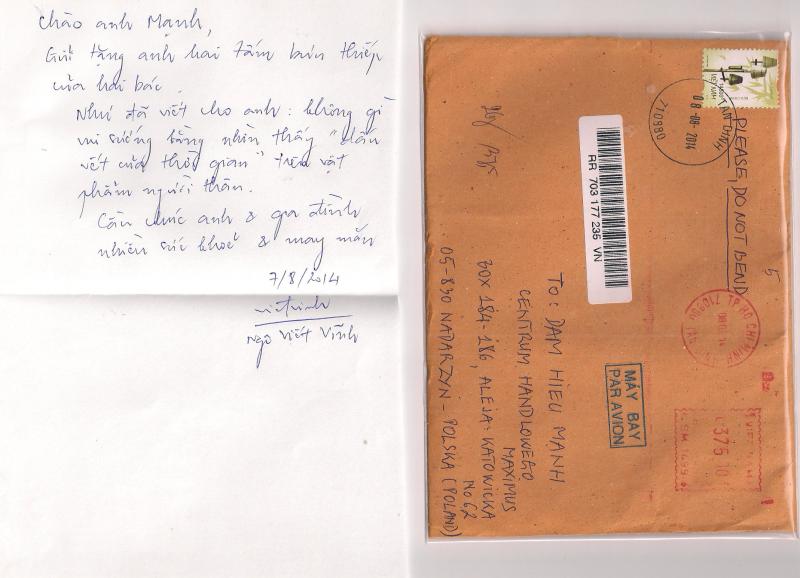 Chào anh Mạnh,
Gửi tặng anh hai tấm bưu thiếp
của hai bác.
Như đã viết cho anh: không gì
vui sướng bằng nhìn thấy "dấu
vết của thời gian" trên vật
phẩm người thân.
Cầu chúc anh & gia đình
nhiều sức khoẻ & may mắn
7/8/2014
Ngô Viết Vĩnh
PLEASE, DO NOT BEND
5
08-08-2014
710980
RR 703 177 235 VN
MÁY BAY
PAR AVION
To: DAM HIEU MANH
CENTRUM HANDLOWEGO
MAXIMUS
BOX 184-186, ALEJA: KATOWICKA
No 62
05-830 NADARZYN - POLSKA (POLAND)